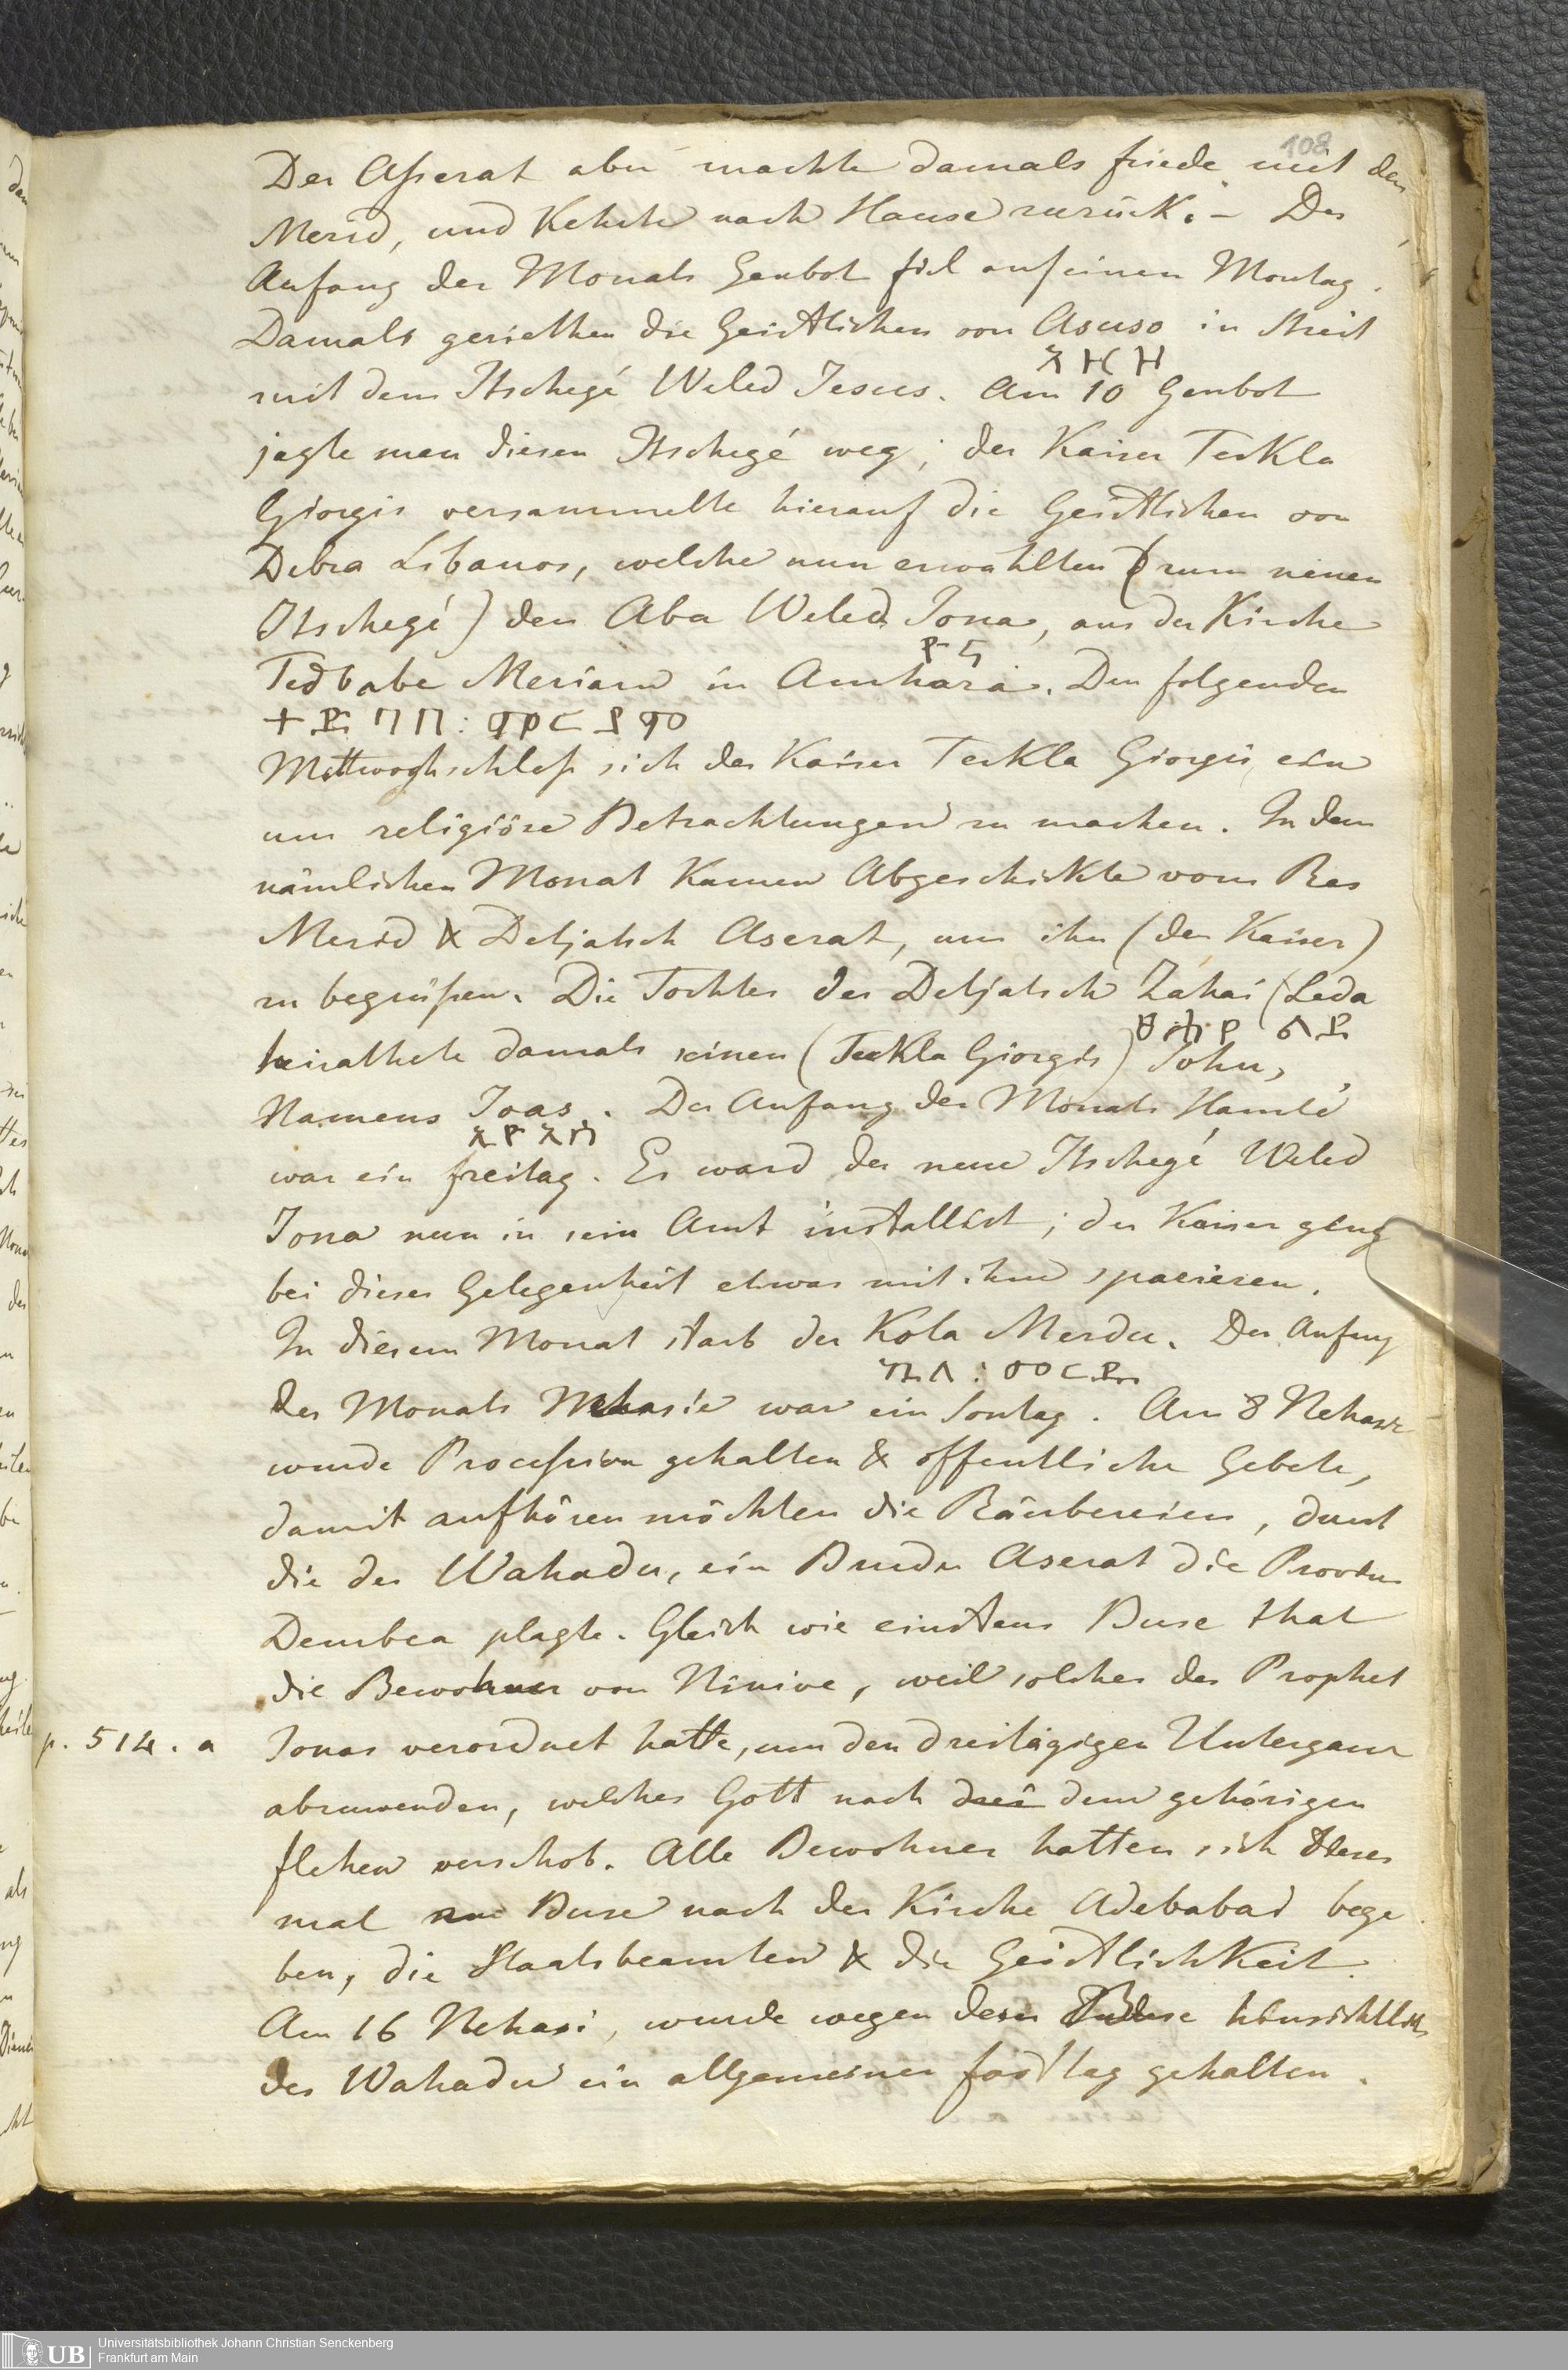 108
Der Asserat aber machte damals friede mit den
Merid, und Kehrte nach Hause zurück. – Der
Anfang des Monats Genbot fiel auf einen Montag.
Damals geriethen die Geistlichen von Asuso in Streit
mit dem Itschegé Weled Jesus. Am 10 Genbot
jagte man diesen Itschegé weg; der Kaiser Teckla
Giorgis versammelte hierauf die Geistlichen von
Debra Libanos, welche nun erwählten (zum neuen
Itschegé) den Aba Weled Jona, aus der Kirche
ዮና
Tedbabe Meriam in Amhara. Den folgenden
ተድባበ: ማርያም
Mittwoch schloß sich der Kaiser Teckla Giorgis ein
um religiöse Betrachtungen zu machen. In dem
nämlichen Monat Kamen Abgeschickte vom Ras
Merid & Detjatsch Aserat, um ihn (den Kaiser)
zu begrüßen. Die Tochter des Detjatsch Zahai (Leda
ፀሐይ ልዳ
heirathete damals seinen (Teckla Giorgis) Sohn,
Namens Joas. Der Anfang des Monats Hamlé
ኢዮአስ
war ein freitag. Es ward der neue Itschegé Weled
Jona nun in sein Amt installirt; der Kaiser ging
bei dieser Gelegenheit etwas mit ihm spazieren.
In diesem Monat starb der Kola Merdu. Der Anfang
ኆለ: መርዱ
des Monats Nehasie war ein Sontag. Am 8 Nehasie
wurde Procession gehalten & öffentliche Gebete,
damit aufhören möchten die Räubereien, durch
die der Wahadu, ein Bruder Aserat die Provinz
Dembea plagte. Gleich wie einstens Buse that
die Bewohner von Ninive, weil solches der Prophet
p. 514. a
Jonas verordnet hatte, um den dreitägigen Untergang
abzuwenden, welches Gott nach drei dem gehörigen
flehen verschob. Alle Bewohner hatten sich dieses
mal zur Buse nach der Kirche Adebabai bege
ben, die Staatsbeamten & die Geistlichkeit.
Am 16 Nehasi, wurde wegen der Buse hinsichtlich
des Wahadu ein allgemeiner fasttag gehalten.
UB
Universitätsbibliothek Johann Christian Senckenberg
Frankfurt am Main